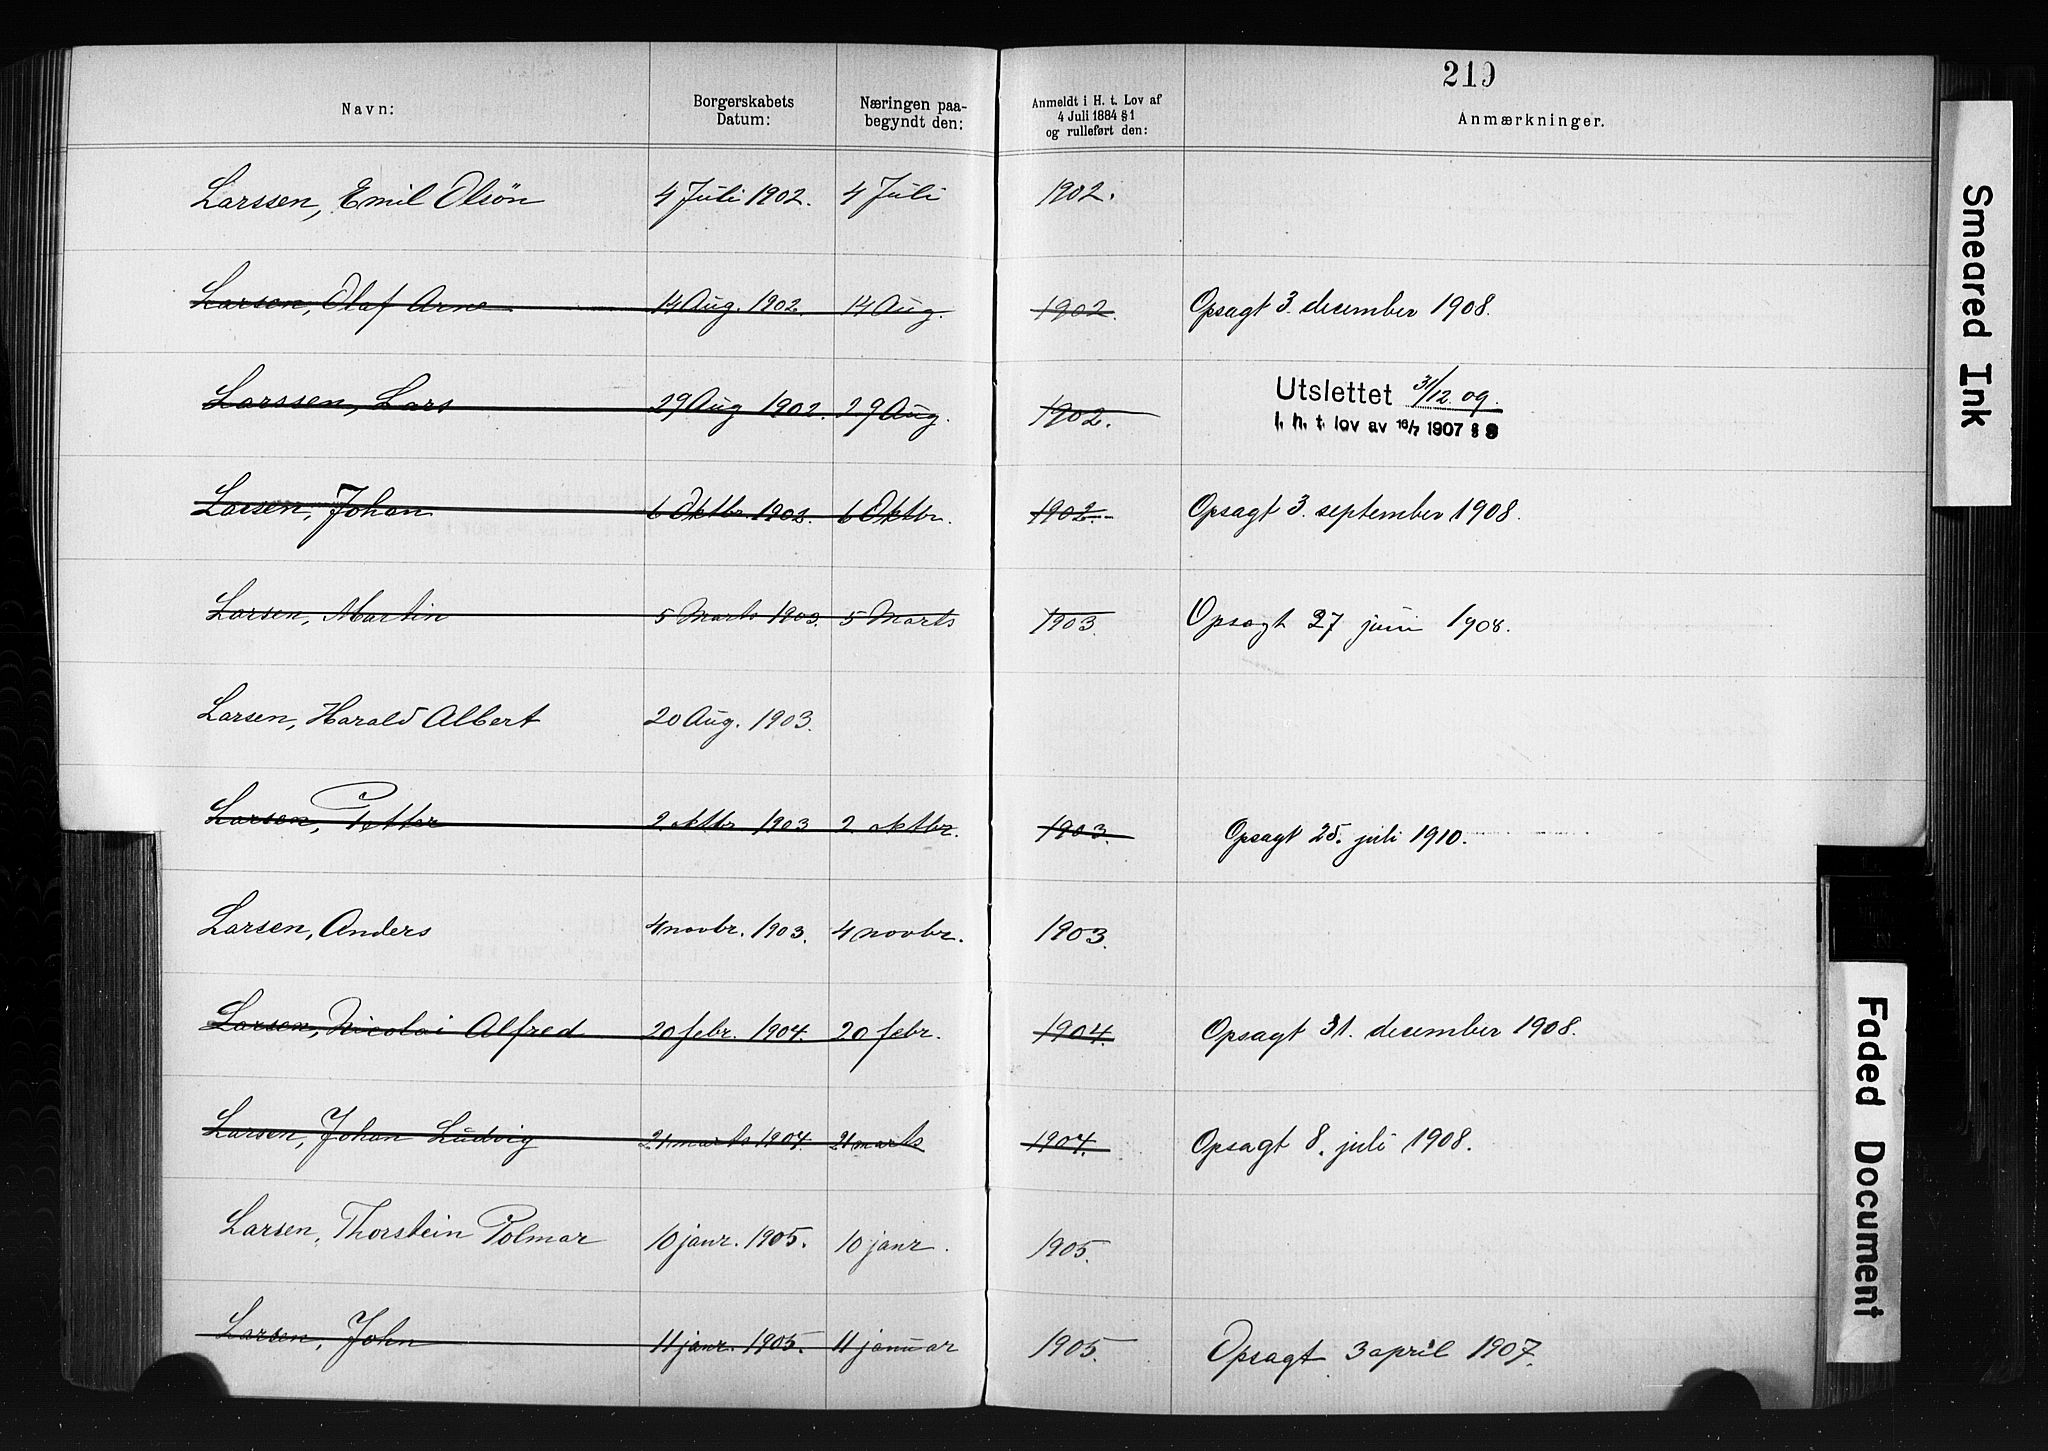 219
Navn: Borgerskabets Datum: Næringen paa-begyndt den: Anmeldt i H. t. Lov af 4 Juli 1884 § 1 og rulleført den: Anmærkninger.
Larssen, Emil Olsön 4 Juli 1902. 4 Juli 1902.
Larsen, Olaf Arne 14 Aug. 1902. 14 Aug. 1902. Opsagt 3. december 1908.
Larssen, Lars 29 Aug 1902. 29 Aug. 1902. Utslettet 31/12 09.
I. h. t. lov av 16/7 1907 §
Larsen, Johan 6 Oktbr 1902. 6 Oktbr. 1902.- Opsagt 3. september 1908.
Larsen, Martin 5 Marts 1903. 5 Marts 1903. Opsagt 27 juni 1908.
Larsen, Harald Albert 20 Aug. 1903.
Larsen, Petter 2 oktbr 1903 2 oktbr. 1903. Opsagt 25. juli 1910.
Larsen, Anders 4 novbr. 1903. 4 novbr. 1903.
Larsen, Nicolai Alfred 20 febr. 1904. 20 febr. 1904. Opsagt 31. december 1908.
Larsen, Johan Ludvig 21 marts 1904. 21 marts 1904. Opsagt 8. juli 1908.
Larsen, Thorstein Polmar 10 janr. 1905. 10 janr. 1905.
Larsen, John 11 janr. 1905. 11 januar 1905. Opsagt 3 april 1907.
Smeared Ink
Faded Document